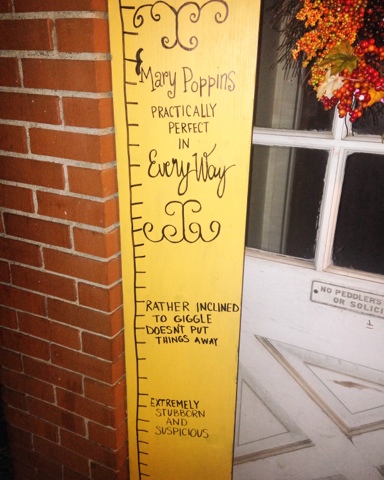 Mary Poppins
PRACTICALLY
PERFECT
IN
Every Way
RATHER INCLINED
TO GIGGLE
DOESNT PUT
THINGS AWAY
EXTREMELY
STUBBORN
AND
SUSPICIOUS
NO PEDDLERS
OR SOLICI